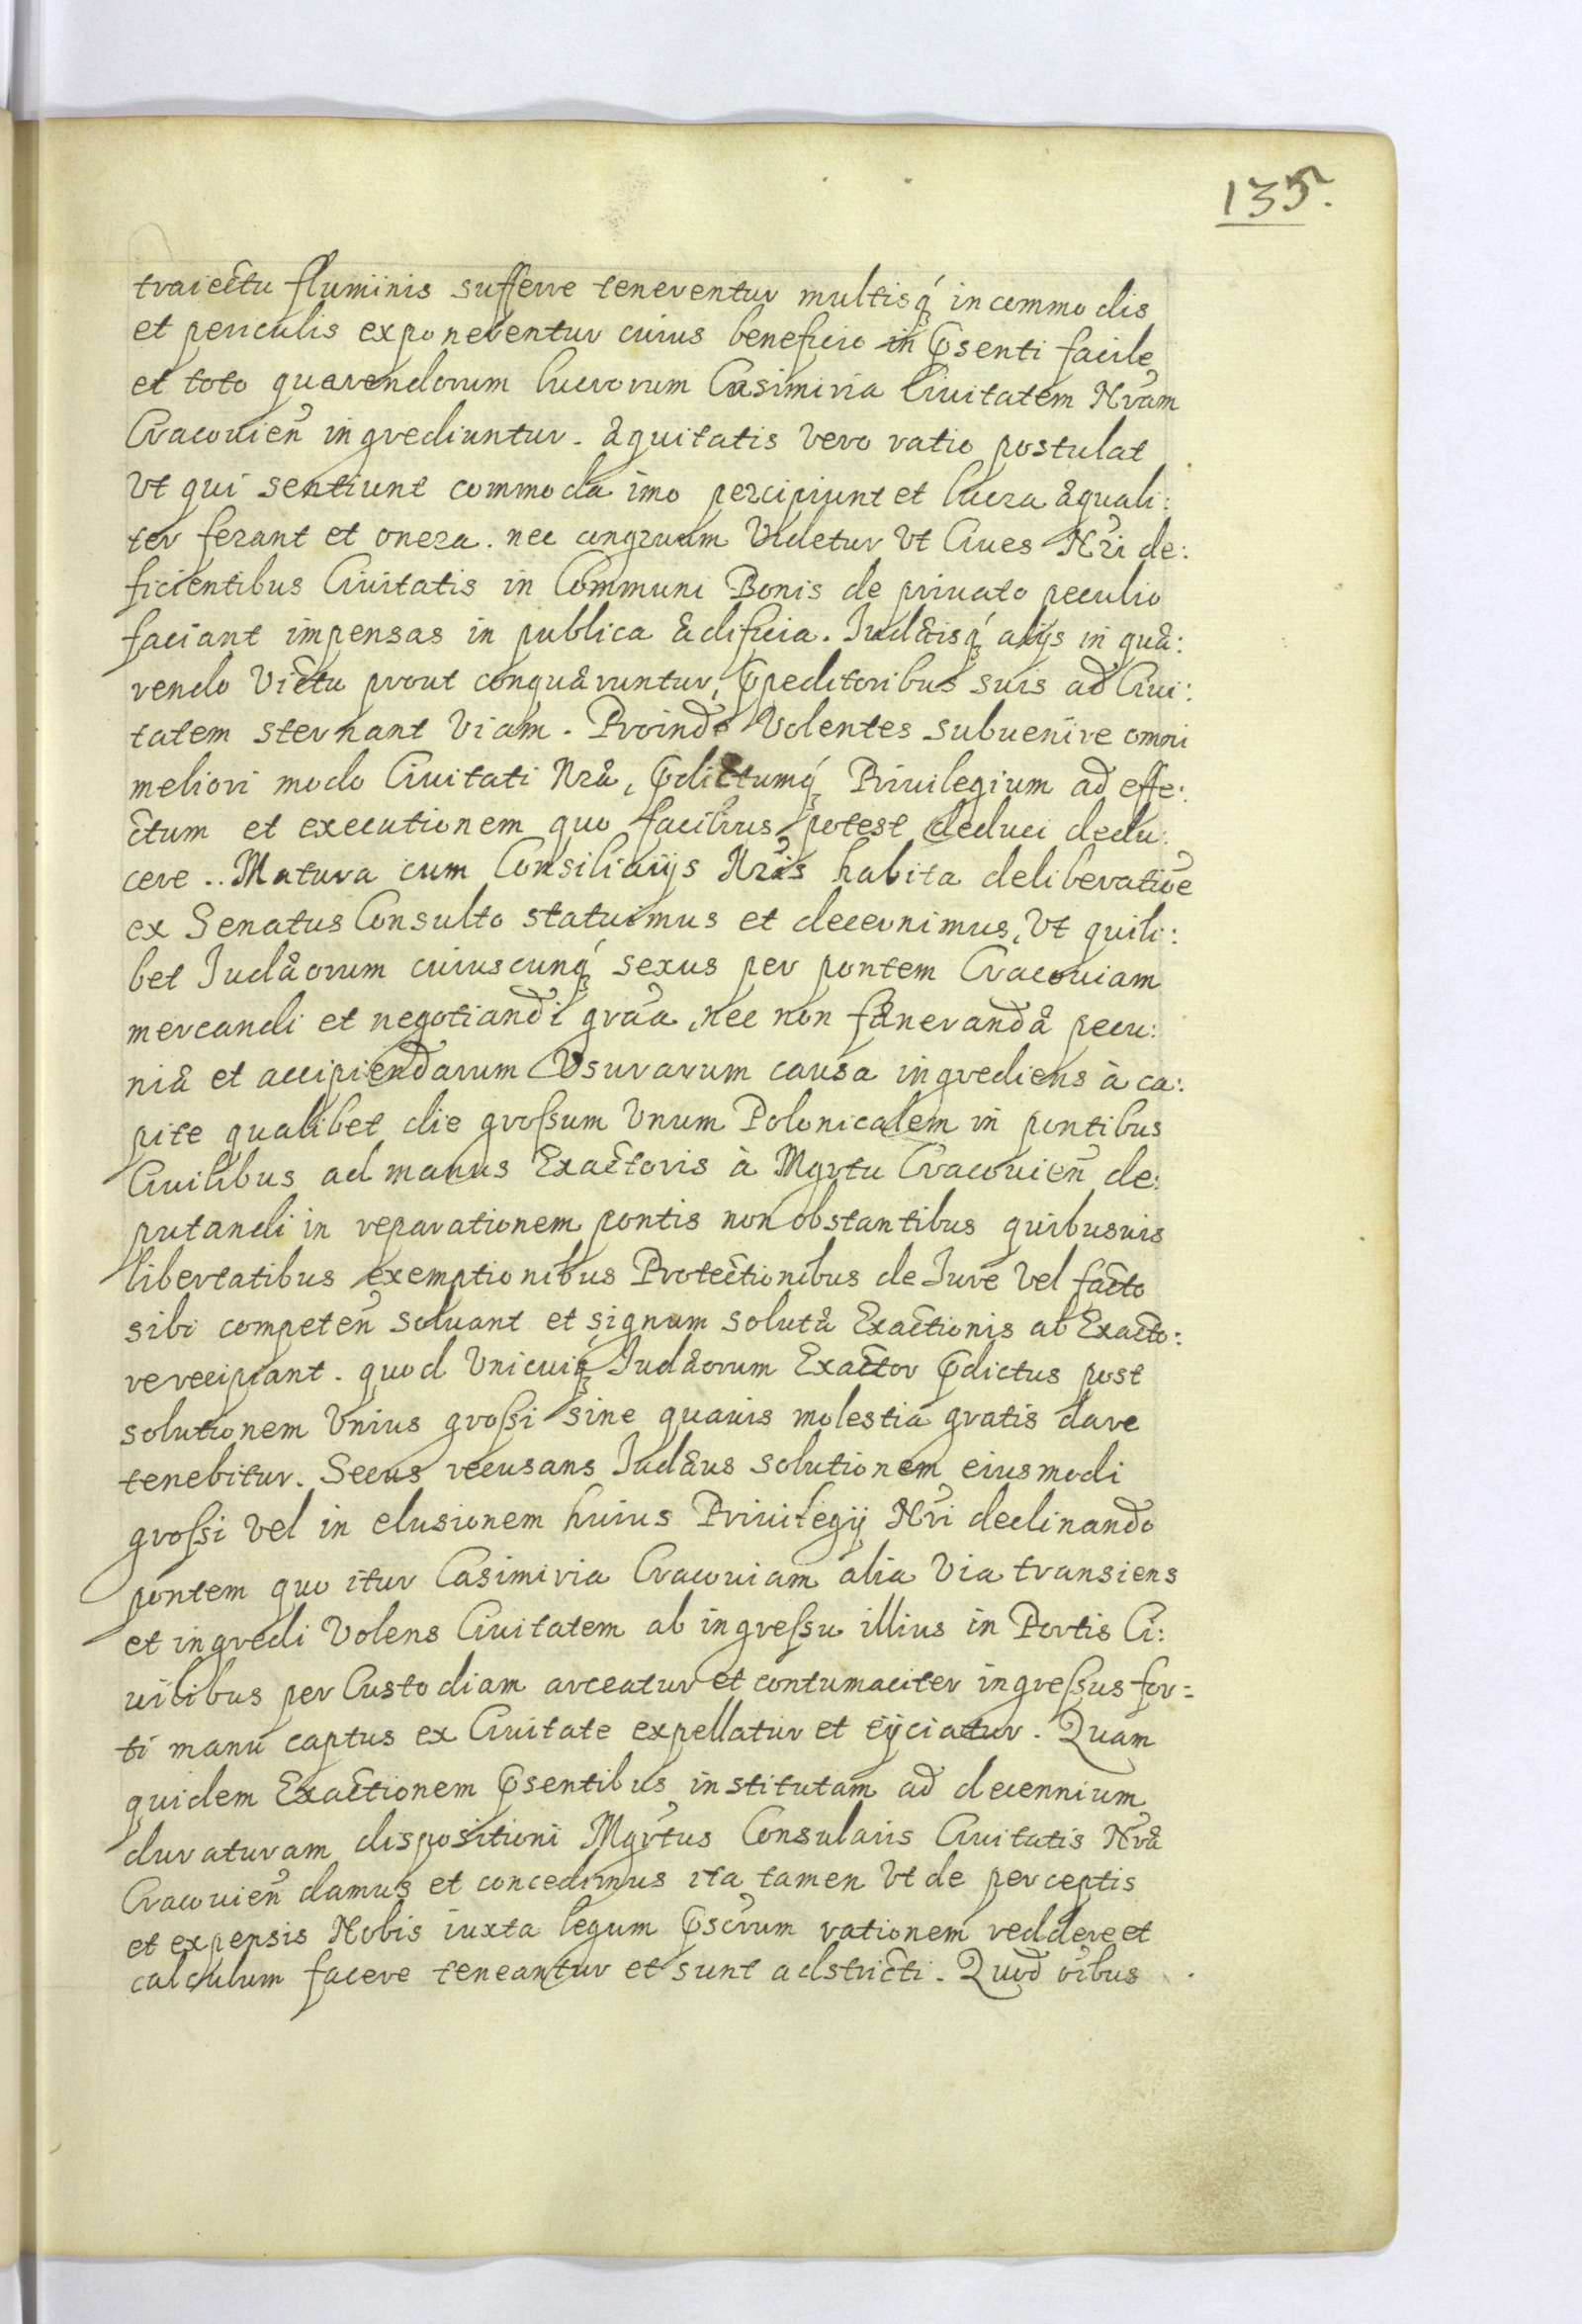 135.
traiectu fluminis sufferre tenerentur multisq́ incommodis
et periculis exponerentur cuius beneficio in p̃senti facile
et toto quærendorum lucrorum Casimiria Ciuitatem Nrãm
Cracouień ingrediuntur. æquitatis vero ratio postulat
Vt qui sentiunt commoda imo percipiunt et lucra æquali:
ter ferant et onera. nec congruum Videtur Vt Ciues Nr̃i de:
ficientibus Ciuitatis in Communi Bonis de priuato peculio
faciant impensas in publica ædificia. Iudæisq́ alijs in quæ:
rendo Victu prout conquæruntur, p̃peditoribus suis ad Ciui:
tatem sternant Viam. Proinde Volentes subuenire omni
meliori modo Ciuitati Nræ, p̃dictumq́ Priuilegium ad effe:
ctum et executionem quo facilius potest deduci dedu:
cere.. Matura cum Consiliarijs Nr̃is habita deliberatioẽ
ex Senatus Consulto statuimus et decernimus, Vt quili:
bet Iudæorum cuiuscunq́ sexus per pontem Cracouiam
mercandi et negotiandi grãa, nec non fænerandæ pecu:
niæ et accipiendarum Vsurarum causa ingrediens à ca:
pite qualibet die grossum Vnum Polonicalem in pontibus
Ciuilibus ad manus Exactoris à Mgrtu Cracouień de:
putandi in reparationem pontis non obstantibus quibusuis
libertatibus exemptionibus Protectionibus de Iure Vel facto
sibi competeñ soluant et signum solutæ Exactionis ab Exacto:
re recipiant. quod Vnicuiq́ Iudæorum Exactor p̃dictus post
solutionem Vnius grossi sine quauis molestia gratis dare
tenebitur. Secus recusans Iudæus solutionem eiusmodi
grossi Vel in elusionem huius Priuilegij Nr̃i declinando
pontem quo itur Casimiria Cracouiam alia Via transiens
et ingredi Volens Ciuitatem ab ingressu illius in Portis Ci:
uilibus per Custodiam arceatur et contumaciter ingressus for=
ti manu captus ex Ciuitate expellatur et eijciatur. Quam
quidem Exactionem p̃sentibus institutam ad decennium
duraturam dispositioni Mgrtus Consularis Ciuitatis Nr̃æ
Cracouień damus et concedimus ita tamen Vt de perceptis
et expensis Nobis iuxta legum p̃scr̃um rationem reddere et
calculum facere teneantur et sunt adstricti. Quod oĩbus